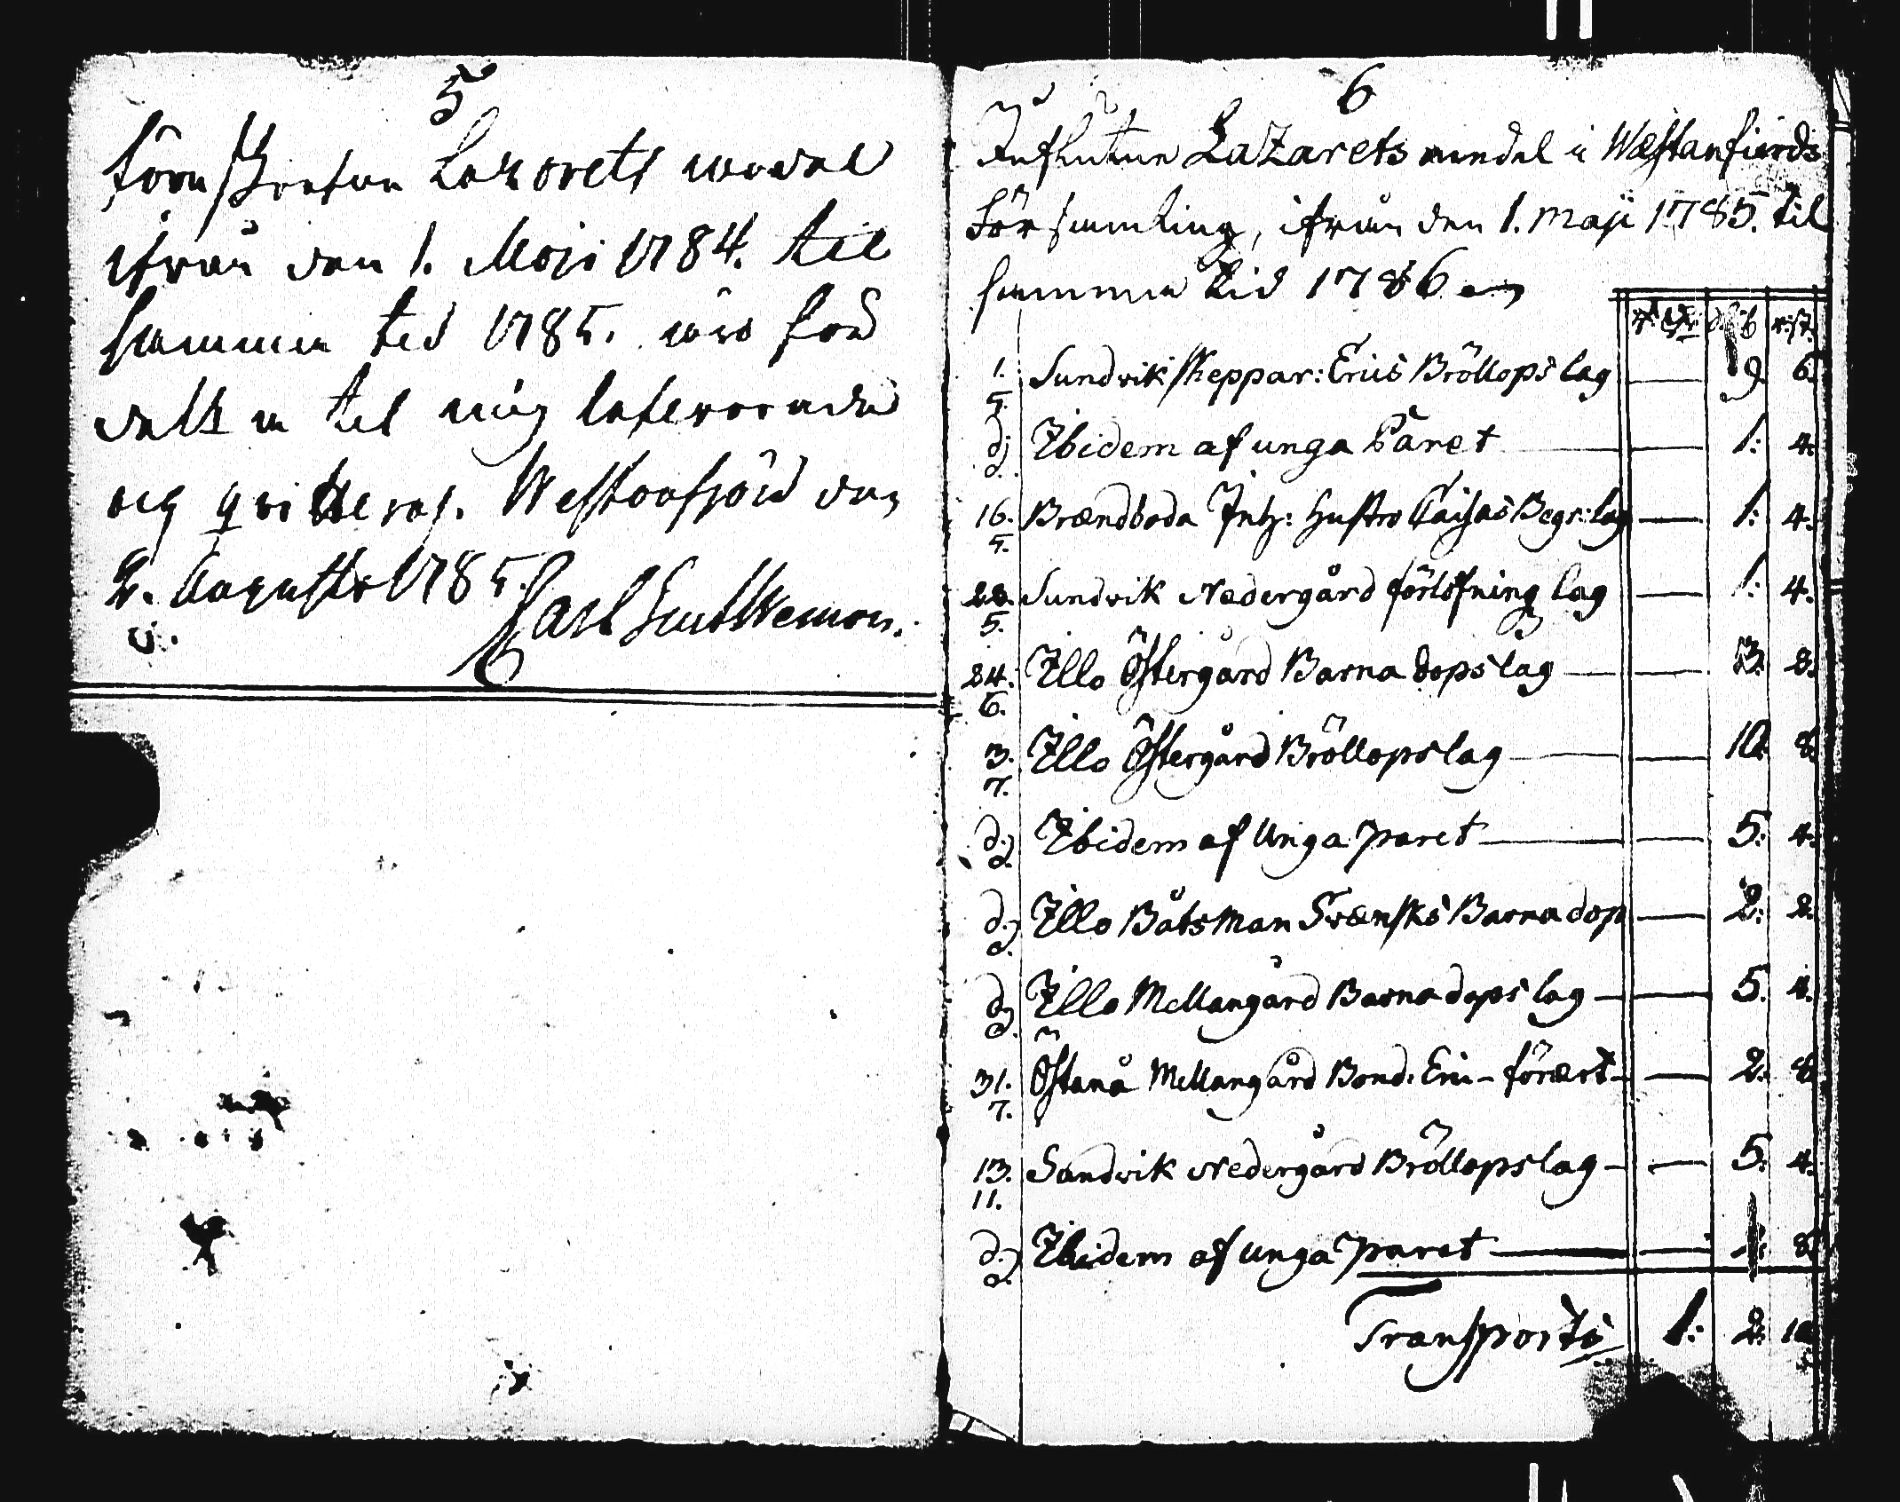 5
före skrefne Lazarets medel
ifrån den 1. Maji 1784. til
samma tid 1785.
til mig lefererade
och qvitteras. Westanfjärd den
2. Augusti 1785.
Carl
6
Influtne Lazarets medel i Wæstanfiærds
församling, ifrån den 1. Maji 1785. til
samma tid 1786
1. 5. Sundvik Skeppar: Erics Bröllops lag — 9. 6.
d:o Ibidem af unga Paret — 1: 4.
16. 5. Brændboda Inh: hustro Caisas Begr: lag — 1: 4.
28. 5. Sundvik Nedergård förlofning lag — 1: 4.
24. 6. Illo Östergård Barna dops lag — 3. 8.
3. 7. Illo Östergård Bröllops lag — 10. 8.
d:o Ibidem af Unga paret — 5: 4.
d:o Illo Båtsman Svænsks Barnadop — 2: 2.
d:o Illo Mellangård Barnadops lag — 5. 4.
31. 7. Östanå Mellangård Bond: Eric förært — 2. 8.
13. 11. Sandvik Nedergård Bröllops lag — 5. 4.
d:o Ibidem af unga paret — 8.
Transporto 1: 2. 10